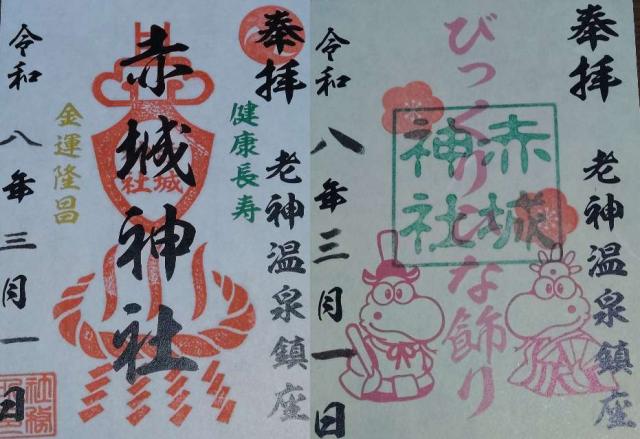 奉拝
老神温泉鎮座
健康長寿
赤城神社
城
社
金運隆昌
令和八年三月一日
奉拝
老神温泉鎮座
びっくりひな飾り
赤城
神社
令和八年三月一日